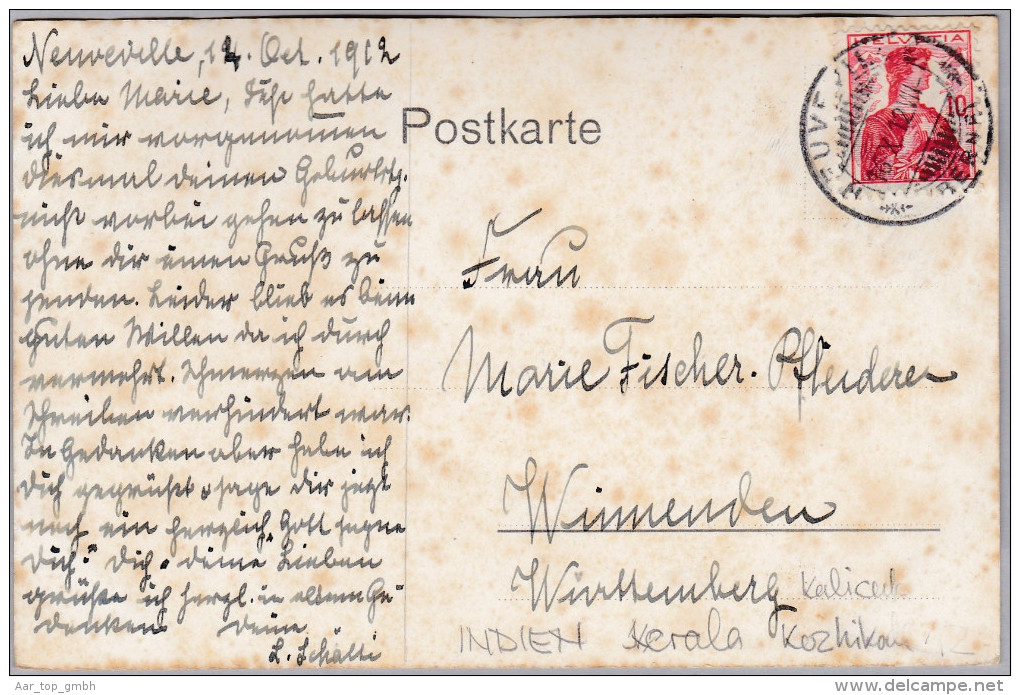 Neuveville, 12. Oct. 1912
Liebe Marie, Sehr hatte
ich mir vorgenommen
diesmal deinen Geburtstg.
nicht vorbei gehen zu lassen
ohne dir einen Gruß zu
senden. Leider blieb es beim
guten Willen da ich durch
vermehrt. Schmerzen am
Schreiben verhindert war.
In Gedanken aber habe ich
dich gegrüßt u. sage dir jetzt
noch ein herzlich „Gott segne
dich“! Dich u. deine Lieben
grüße ich herzl. in altem Ge
denken Deine
L. Schälti
Postkarte
HELVETIA
10
NEUVEVILLE
(BERNE)
Frau
Marie Fischer-Pfleiderer
Winnenden
Württemberg
Kalicut
INDIEN Kerala Kozhikau
Aar_top_gmbh
© www.delcampe.net